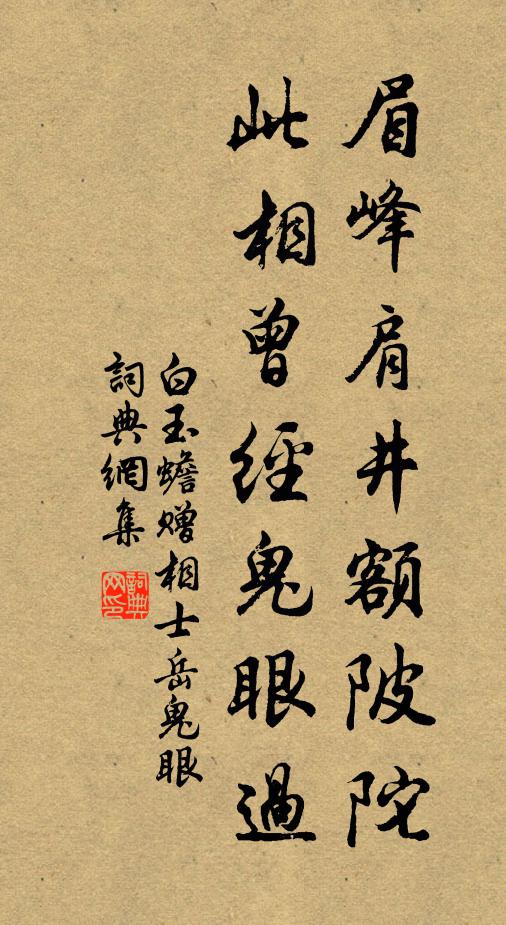 眉峰肩井額陂陀
此相曾經鬼眼過
白玉蟾赠相士岳鬼眼
詞典網集
詞典网印